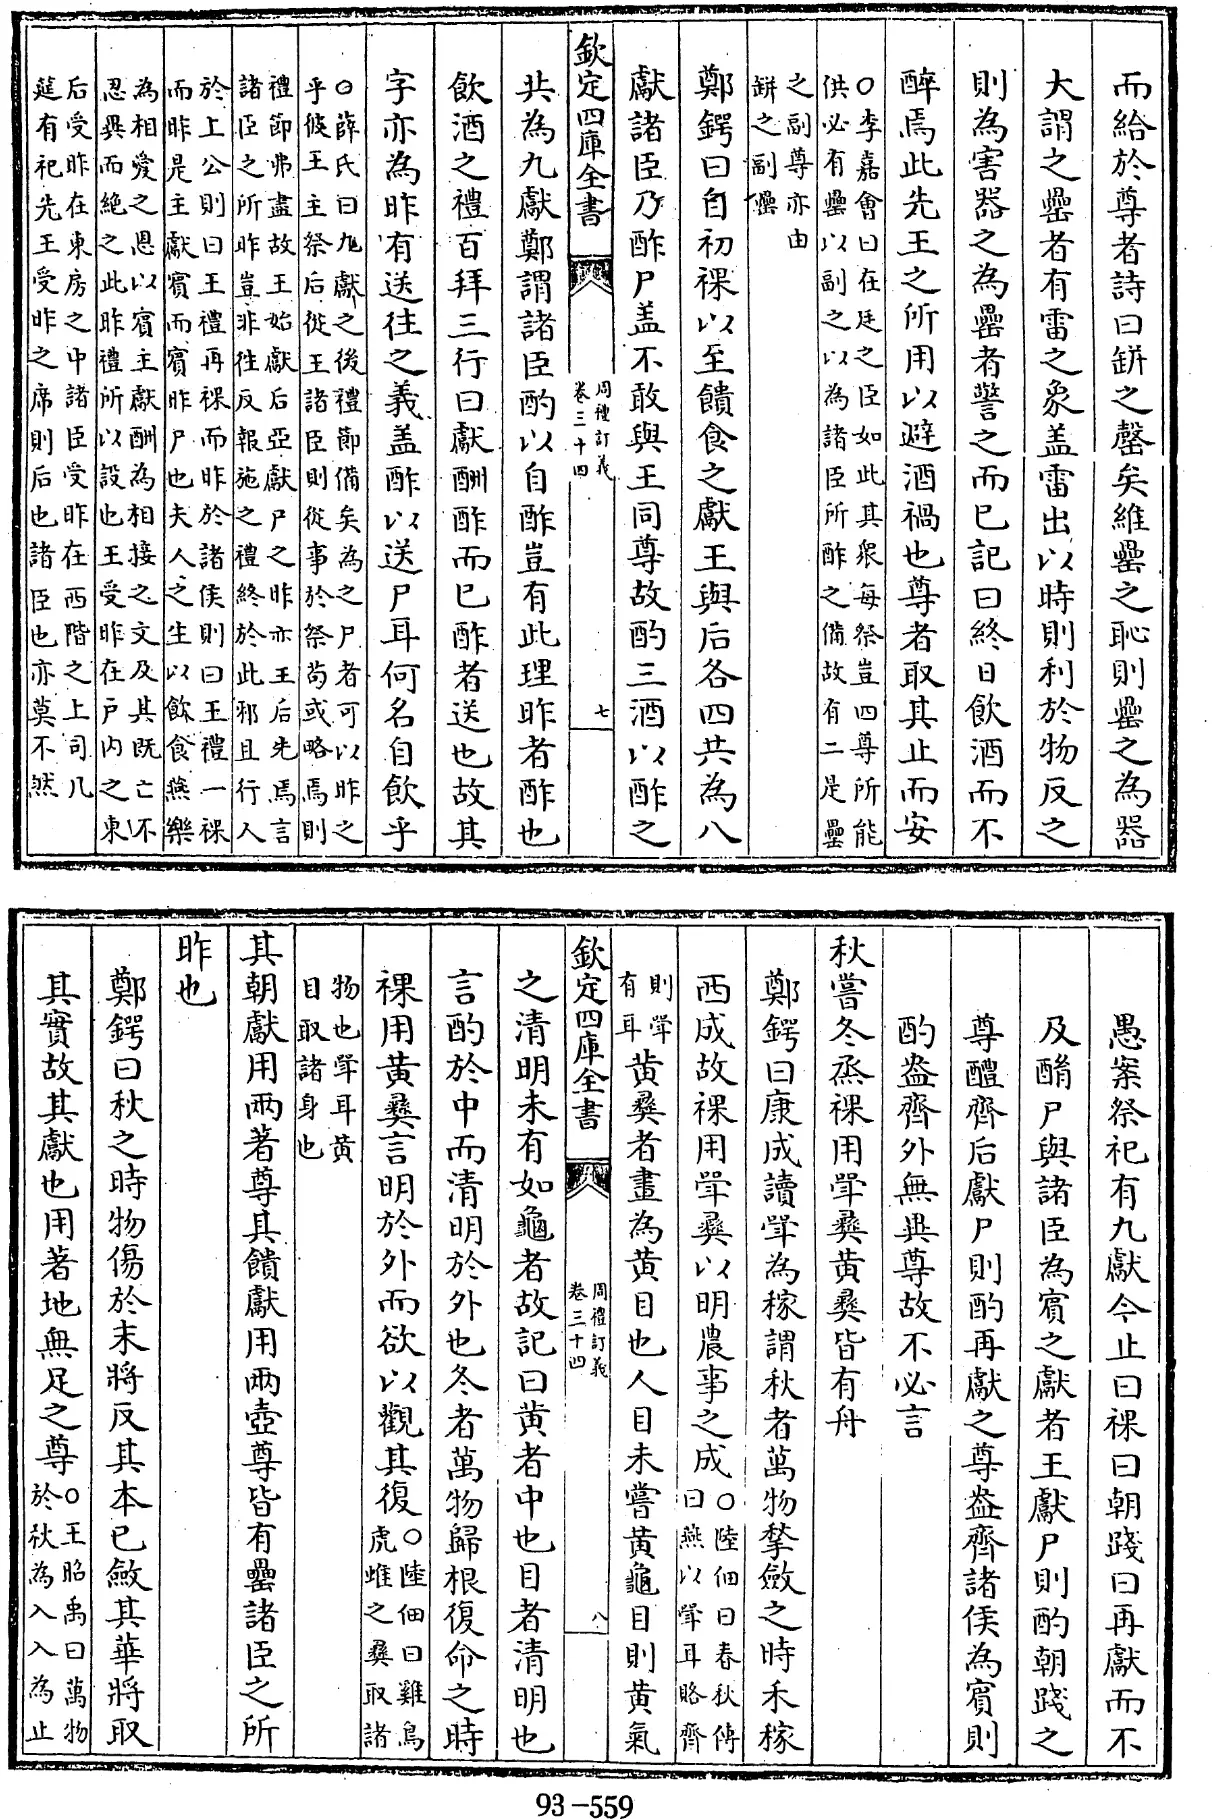 而給於尊者詩曰缾之罄矣維罍之恥則罍之為器
大謂之罍者有雷之象盖雷出以時則利於物反之
則為害器之為罍者警之而已記曰終日飲酒而不
醉焉此先王之所用以避酒禍也尊者取其止而安
○李嘉會曰在廷之臣如此其衆每祭豈四尊所能
供必有罍以副之以為諸臣所酢之備故有二是罍
之副尊亦由
缾之副罍
鄭鍔曰自初祼以至饋食之獻王與后各四共為八
獻諸臣乃酢尸盖不敢與王同尊故酌三酒以酢之
欽定四庫全書
周禮訂義
卷三十四
七
共為九獻鄭謂諸臣酌以自酢豈有此理昨者酢也
飲酒之禮百拜三行曰獻酬酢而已酢者送也故其
字亦為昨有送往之義盖酢以送尸耳何名自飲乎
○薛氏曰九獻之後禮節備矣為之尸者可以昨之
乎彼王主祭后從王諸臣則從事於祭苟或略焉則
禮節弗盡故王始獻后亞獻尸之昨亦王后先焉言
諸臣之所昨豈非徃反報施之禮終於此邪且行人
於上公則曰王禮再祼而昨於諸侯則曰王禮一祼
而昨是主獻賓而賓昨尸也夫人之生以飲食燕樂
為相愛之恩以賓主獻酬為相接之文及其既亡不
忍異而絶之此昨禮所以設也王受昨在戶內之東
后受昨在東房之中諸臣受昨在西階之上司几
筵有祀先王受昨之席則后也諸臣也亦莫不然
愚案祭祀有九獻今止曰祼曰朝踐曰再獻而不
及酳尸與諸臣為賓之獻者王獻尸則酌朝踐之
尊醴齊后獻尸則酌再獻之尊盎齊諸侯為賓則
酌盎齊外無異尊故不必言
秋嘗冬烝祼用斝彝黄彝皆有舟
鄭鍔曰康成讀斝為稼謂秋者萬物揫斂之時禾稼
西成故祼用斝彝以明農事之成○陸佃曰春秋傳
曰燕以斝耳賂齊
則斝
有耳黄彝者畫為黄目也人目未嘗黄龜目則黄氣
欽定四庫全書
周禮訂義
卷三十四
八
之清明未有如龜者故記曰黄者中也目者清明也
言酌於中而清明於外也冬者萬物歸根復命之時
祼用黄彝言明於外而欲以觀其復○陸佃曰雞鳥
虎蜼之彝取諸
物也斝耳黄
目取諸身也
其朝獻用兩著尊其饋獻用兩壺尊皆有罍諸臣之所
昨也
鄭鍔曰秋之時物傷於末將反其本已斂其華將取
其實故其獻也用著地無足之尊○王昭禹曰萬物
於秋為入入為止
93-559